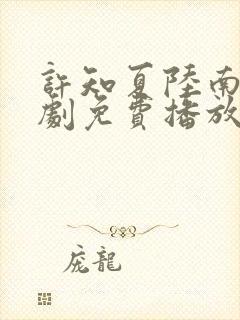 許知夏陸南
劇免費播放
庞龍